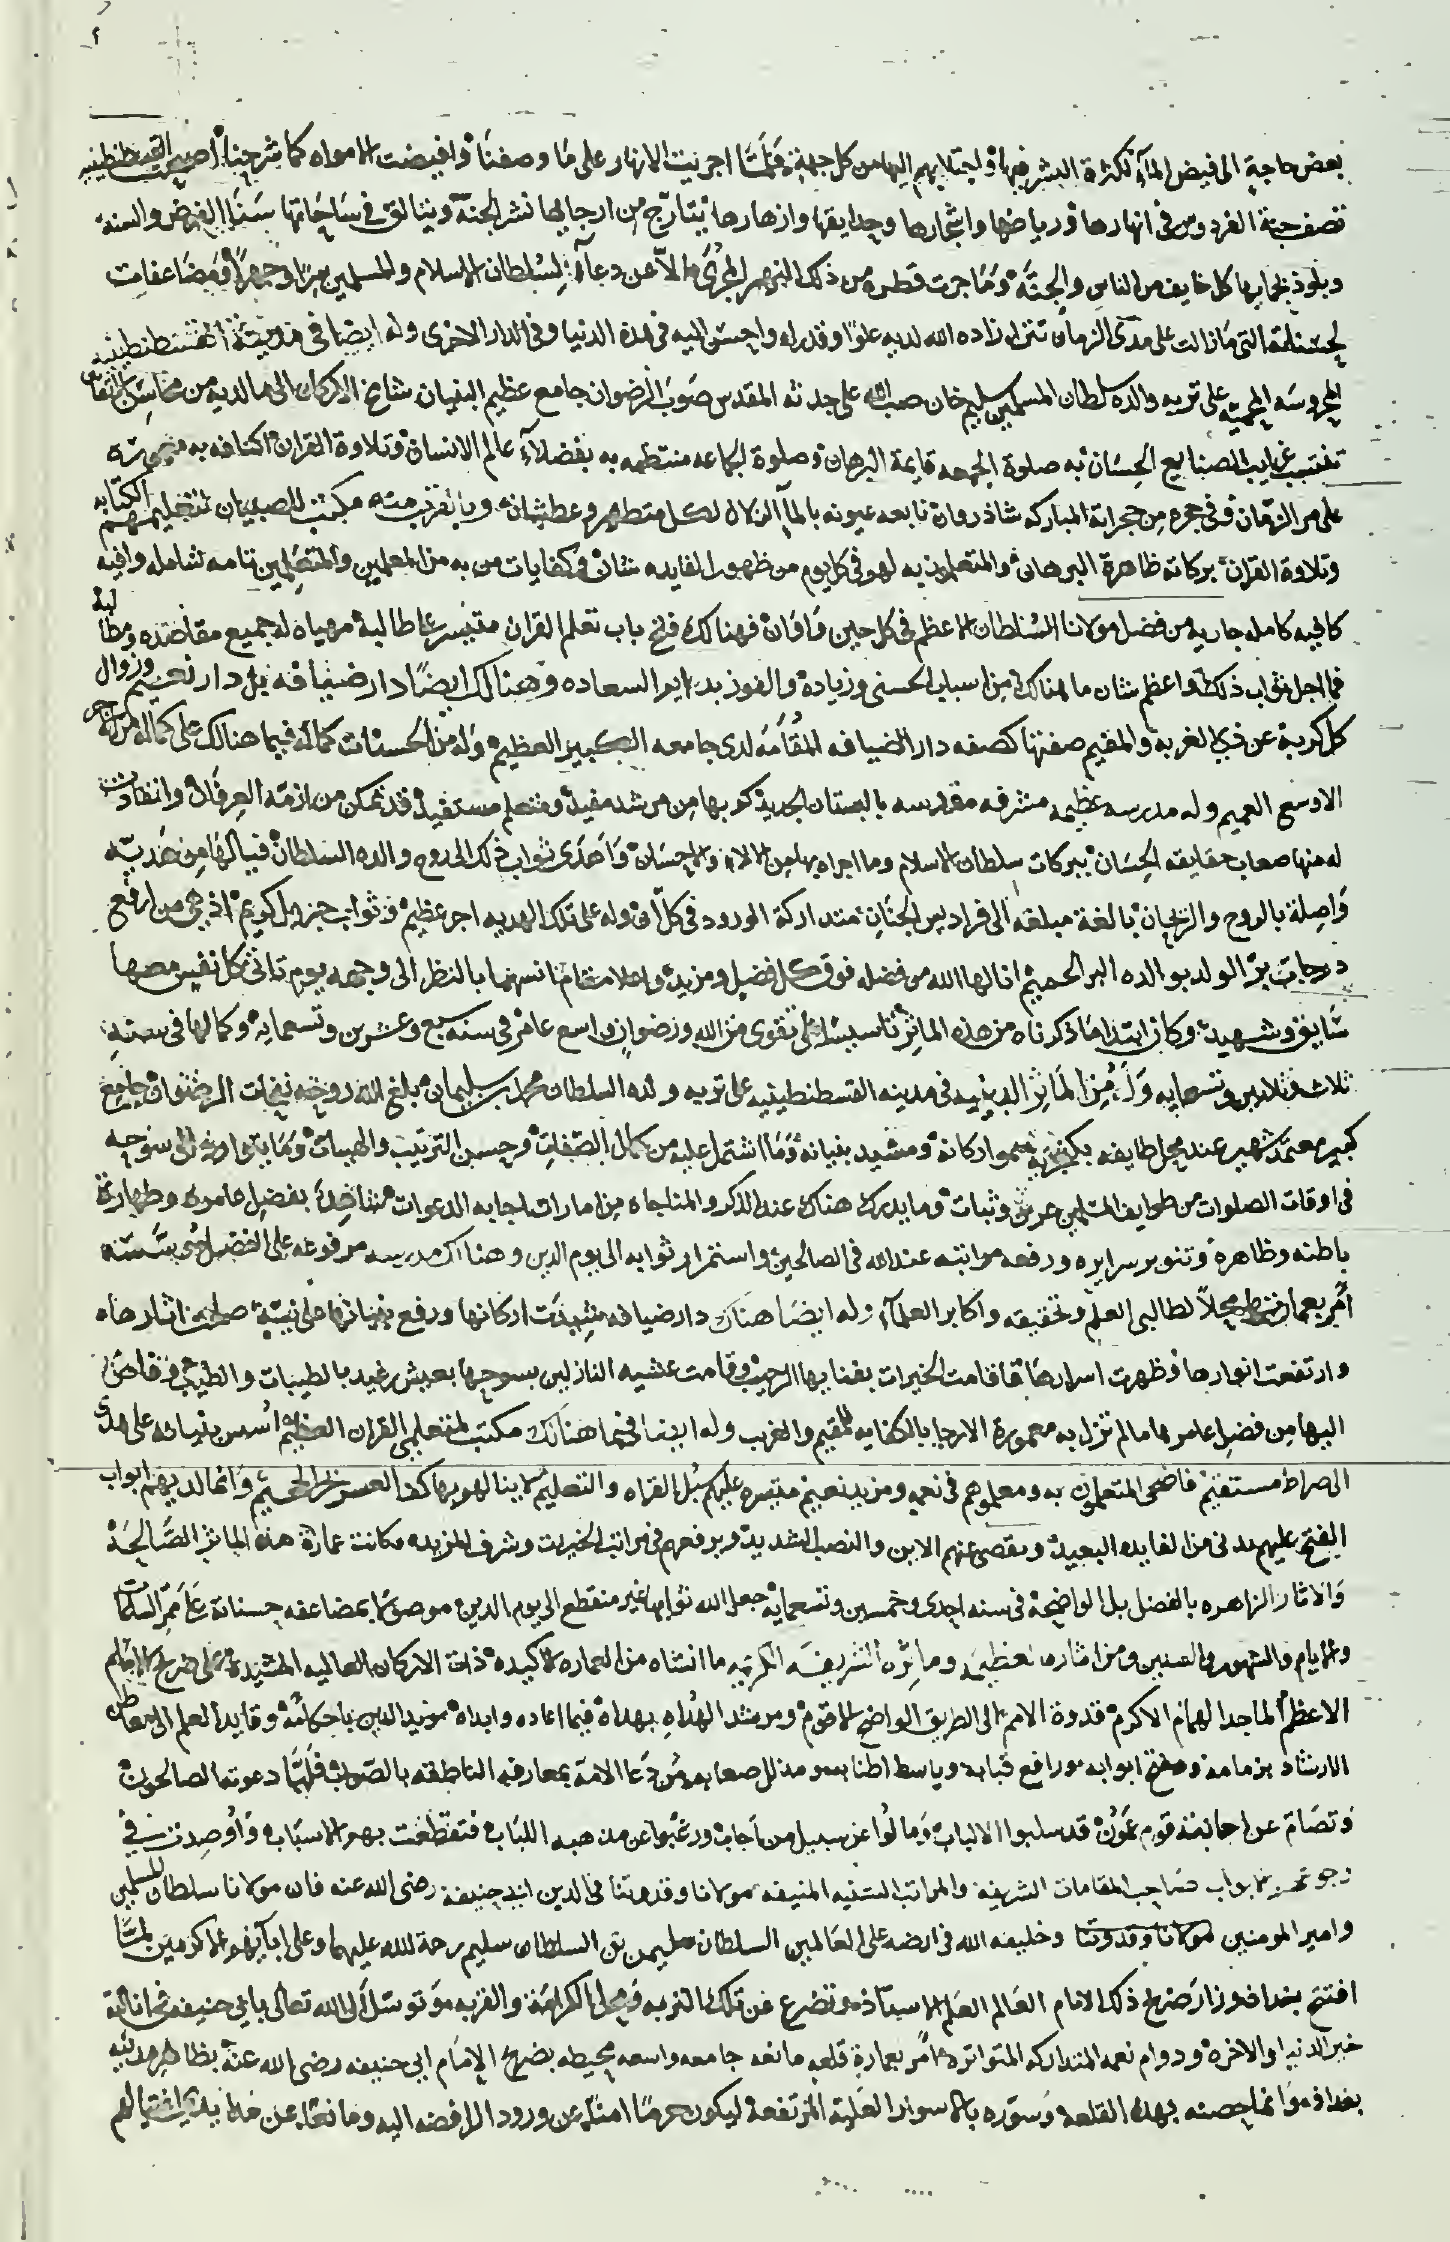 بعض حاجة الى فيض المآء لكثرة البشر فيها واجتلابهم اليها من كل جهة فلما اجريت الانهار على ما وصفنا وافيضت الامواه كما شرحنا اصبحت القسطنطينيه
تصف جنة الفردوس فى انهارها ورياضها واشجارها وحدايقها وازهارها يتارج من ارجايها نشر الجنة ويتالق فى ساحاتها سنا الفرض والسنه
ويلوذ بحماها كل خايف من الناس والجنة وما جرت قطره من ذلك النهر المجرى الا عن دعآء لسلطان الاسلام والمسلمين سرا وجهرا فمضاعفات
حسناته التى ما زالت على مدى الزمان تترا زاده الله لديه علوا وقدرا واحسن اليه فى هذه الدنيا وفى الدار الاخرى وله ايضا فى مدينة القسطنطينيه
المحروسه المحميه على تربه والده سلطان المسلمين سليم خان صب الله على جدثه المقدس صوب الرضوان جامع عظيم البنيان شامخ الاركان الى ما لديه من محاسن
غرايب الصنايع الحسان به صلوة الجمعه قايمة البرهان وصلوة الجماعه منتظمه به بفضلآء عالم الانسان وتلاوة القران اكنافه به معموره
على مر الزمان وفى حجره من حجراته المباركه شاذروان نابعه عيونه بالمآ الزلال لكل متطهر وعطشان وبالقرب منه مكتب للصبيان لتعليمهم الكتابه
وتلاوة القران بركاته ظاهرة البرهان والمتعلمون به لهم فى كل يوم من ظهور الفايده شان وكفايات من به من المعلمين والمتعلمين تامه شامله وافيه
كافيه كامله جاريه من فضل مولانا السلطان الاعظم فى كل حين واوان فهنالك فتح باب تعلم القران متيسر على طالبه مهياه له جميع مقاصده ومطالبه
فما اجل ثواب ذلك واعظم شان ما هنالك من اسباب الحسنى وزياده والفوز بدايم السعاده وهنالك ايضا دار ضيافه بل دار نعيم وزوال
كل كربة عن ذى الغربه والمقيم صفتها كصفه دار الضيافه المقامه لدى جامعه الكبير العظيم وله من الحسنات كماله فيما هنالك على كماله من
الاوسع العميم وله مدرسه عظيمه مشرفه مقدسه بالبستان الجديد كم بها من مرشد مفيد ومتعلم مستفيد قد تمكن من ازمة العرفان وانقادت
له منها صعاب حقايقه الحسان ببركات سلطان الاسلام وما اجراه بها من الالاء والاحسان واهدى ثواب ذلك الى روح والده السلطان فيالها من هديه
واصلة بالروح والريحان بالغة مبلغه الى فراديس الجنان متداركة الورود فى كل آن وله على تلك الهديه اجر عظيم وثواب جزيل كريم اذ هى من ارفع
درجات بر الولد بوالده البر الرحيم انالهما الله من فضله فوق كل فضل ومزيد واعلا مقام انسهما بالنظر الى وجهه يوم تاتى كل نفس معها
سايق وشهيد وكان ابتدا ما ذكرناه من هذه الماثر تاسيسا على تقوى من الله ورضوان واسع عامر فى سنه سبع وعشرين وتسعمايه وكمالها فى سنة
ثلاث وثلاثين وتسعمايه وله من الماثر الدينيه فى مدينه القسطنطينيه على تربه ولده السلطان محمد بن سليمان بلغ الله روحه نفحات الرضوان جامع
كبير معتمد شهير عند كل طايفه سمو اركانه ومشيد بنيانه وما اشتمل عليه من كمال الصفات وحسن الترتيب والهيات وما الى سوحه
فى اوقات الصلوات من طوايف المسلمين عن وثبات وما يدرك هناك عند الذكر والمناجاه من امارات اجابه الدعوات شاهدة بفضل عامره وطهارة
باطنه وظاهره وتنوير سرايره ورفعه مراتبه عند الله فى الصالحين واستمرار ثوابه الى يوم الدين وهناك مدرسه مرفوعه على الفضل
امر بعمارتها محلا لطالبى العلم وتحقيقه واكابر العلمآء وله ايضا هناك دار ضيافه شيدت اركانها ورفع بنيانها على نية صلحت اثارها
وارتفعت انوارها وظهرت اسرارها فاقامت الخيرات بفنايها الرحيب وقامت عشيه النازلين بسوحها بعيش رغيد بالطيبات والطيب وفاض
اليها من فضل عامرها ما لم تزل به معمورة الارجا بالكفايه للمقيم والغريب وله ايضا فيما هنالك مكتب لمتعلمى القران العظيم اسس بنيانه على هدى
الى صراط مستقيم فاضحى المتعلمون به ومعلموهم فى نعم ومزيد نعيم متيسره عليهم سبل القراه والتعليم وانما لديهم ابواب
الفتح عليهم تدنى من الفايده البعيد وتقصى عنهم الاين والنصب الشديد ويرفعهم فى مراتب الخيرات وشرف المزيد وكانت عمارة هذه الماثر الصالحة
والاثار الزاهره بالفضل بل الواضحة فى سنه احدى وخمسين وتسعمايه جعل الله ثوابها غير منقطع الى يوم الدين موصولا بمضاعفه حسناته على ممر الساعات
والايام والشهور والسنين ومن اثاره العظيمه وماثره الشريفه الكريمه ما انشاه من العماره الاكيده ذات الاركان العاليه المشيده على ضريح الامام
الاعظم الماجد الهمام الاكرم قدوة الامم الى الطريق الواضح الاقوم ومرشد الهداه بهداه فيما اعاده وابداه مؤيد الدين باحكامه وقايد العلم الى
الارشاد بزمامه وفتح ابوابه ورافع قبابه وباسط اطنابه ومذلل صعابه من دعا الامة بمعارفه الناطقه بالصواب فلباها دعوته الصالحون
وتصام عن اجابته قوم عمون قد سلبوا الالباب ومالوا عن سبيل من اجاب ورغبوا عن مذهبه اللباب فتقطعت بهم الاسباب واوصدت فى
وجوههم الابواب صاحب المقامات الشريفه والمراتب السنيه المنيفه مولانا وقدوتنا فى الدين ابى حنيفة رضى الله عنه فان مولانا سلطان المسلمين
وامير المومنين مولانا وقدوتنا وخليفه الله فى ارضه على العالمين السلطان سليمن بن السلطان سليم رحمة الله عليهما وعلى ابآيهم الاكرمين لما
افتتح بغداد وزار ضريح ذلك الامام العالم العلم الاستاذ وتضرع عن تلك التربه فى محل الكرامة والقربه وتوسل الى الله تعالى بابى حنيفه فى انالته
خير الدنيا والاخره ودوام نعمه المتداركه المتواتره امر بعمارة قلعه مانعه جامعه واسعه محيطه بضريح الامام ابى حنيفه رضى الله عنه بظاهر مدينه
بغداد وانما حصنه بهذه القلعه وسوره بالاسوار العلية المرتفعة ليكون حرما امنا من ورود الرافضه اليه ومانعا عن